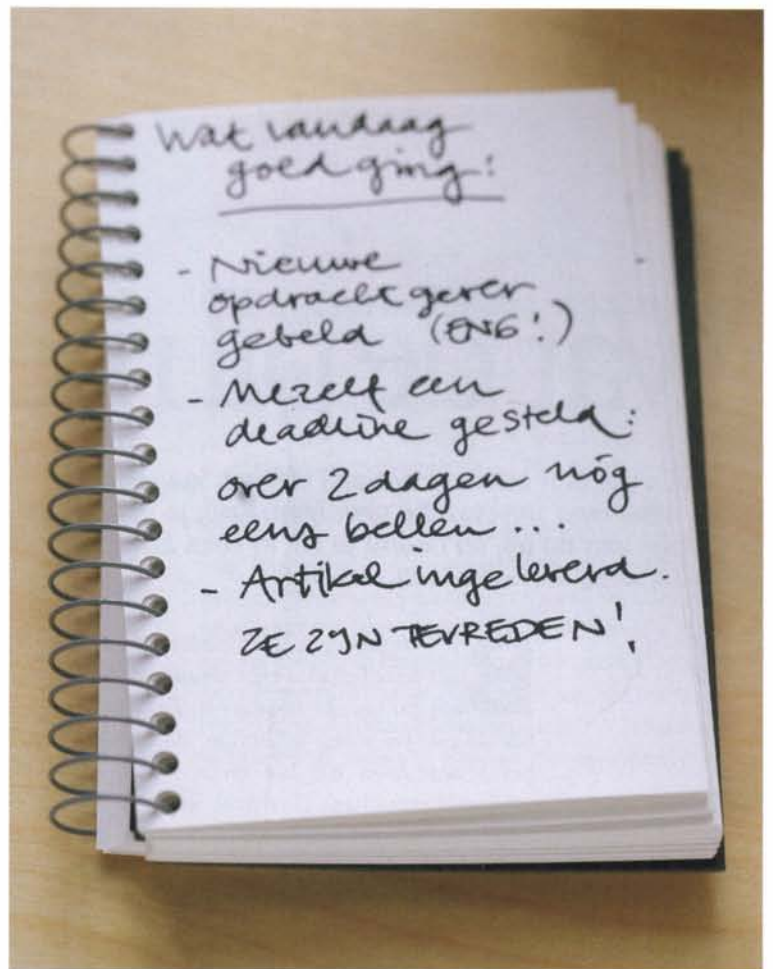 Wat vandaag
goed ging:
- Nieuwe
opdrachtgever
gebeld (ENG!)
- Mezelf een
deadline gesteld:
over 2 dagen nóg
eens bellen...
- Artikel ingeleverd.
ZE ZIJN TEVREDEN!